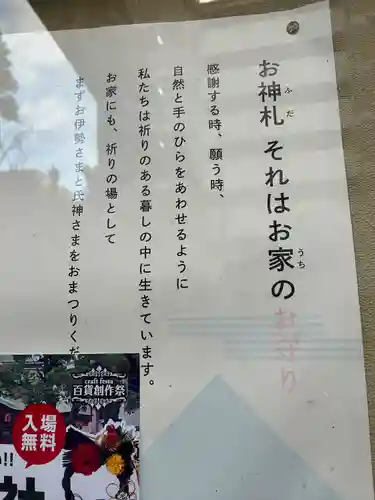 お神札 それはお家の お守り
ふだ
うち
感謝する時、願う時、
自然と手のひらをあわせるように
私たちは祈りのある暮しの中に生きています。
お家にも、祈りの場として
まずお伊勢さまと氏神さまをおまつりくだ
craft festa
百貨創作祭
入場
無料
!!